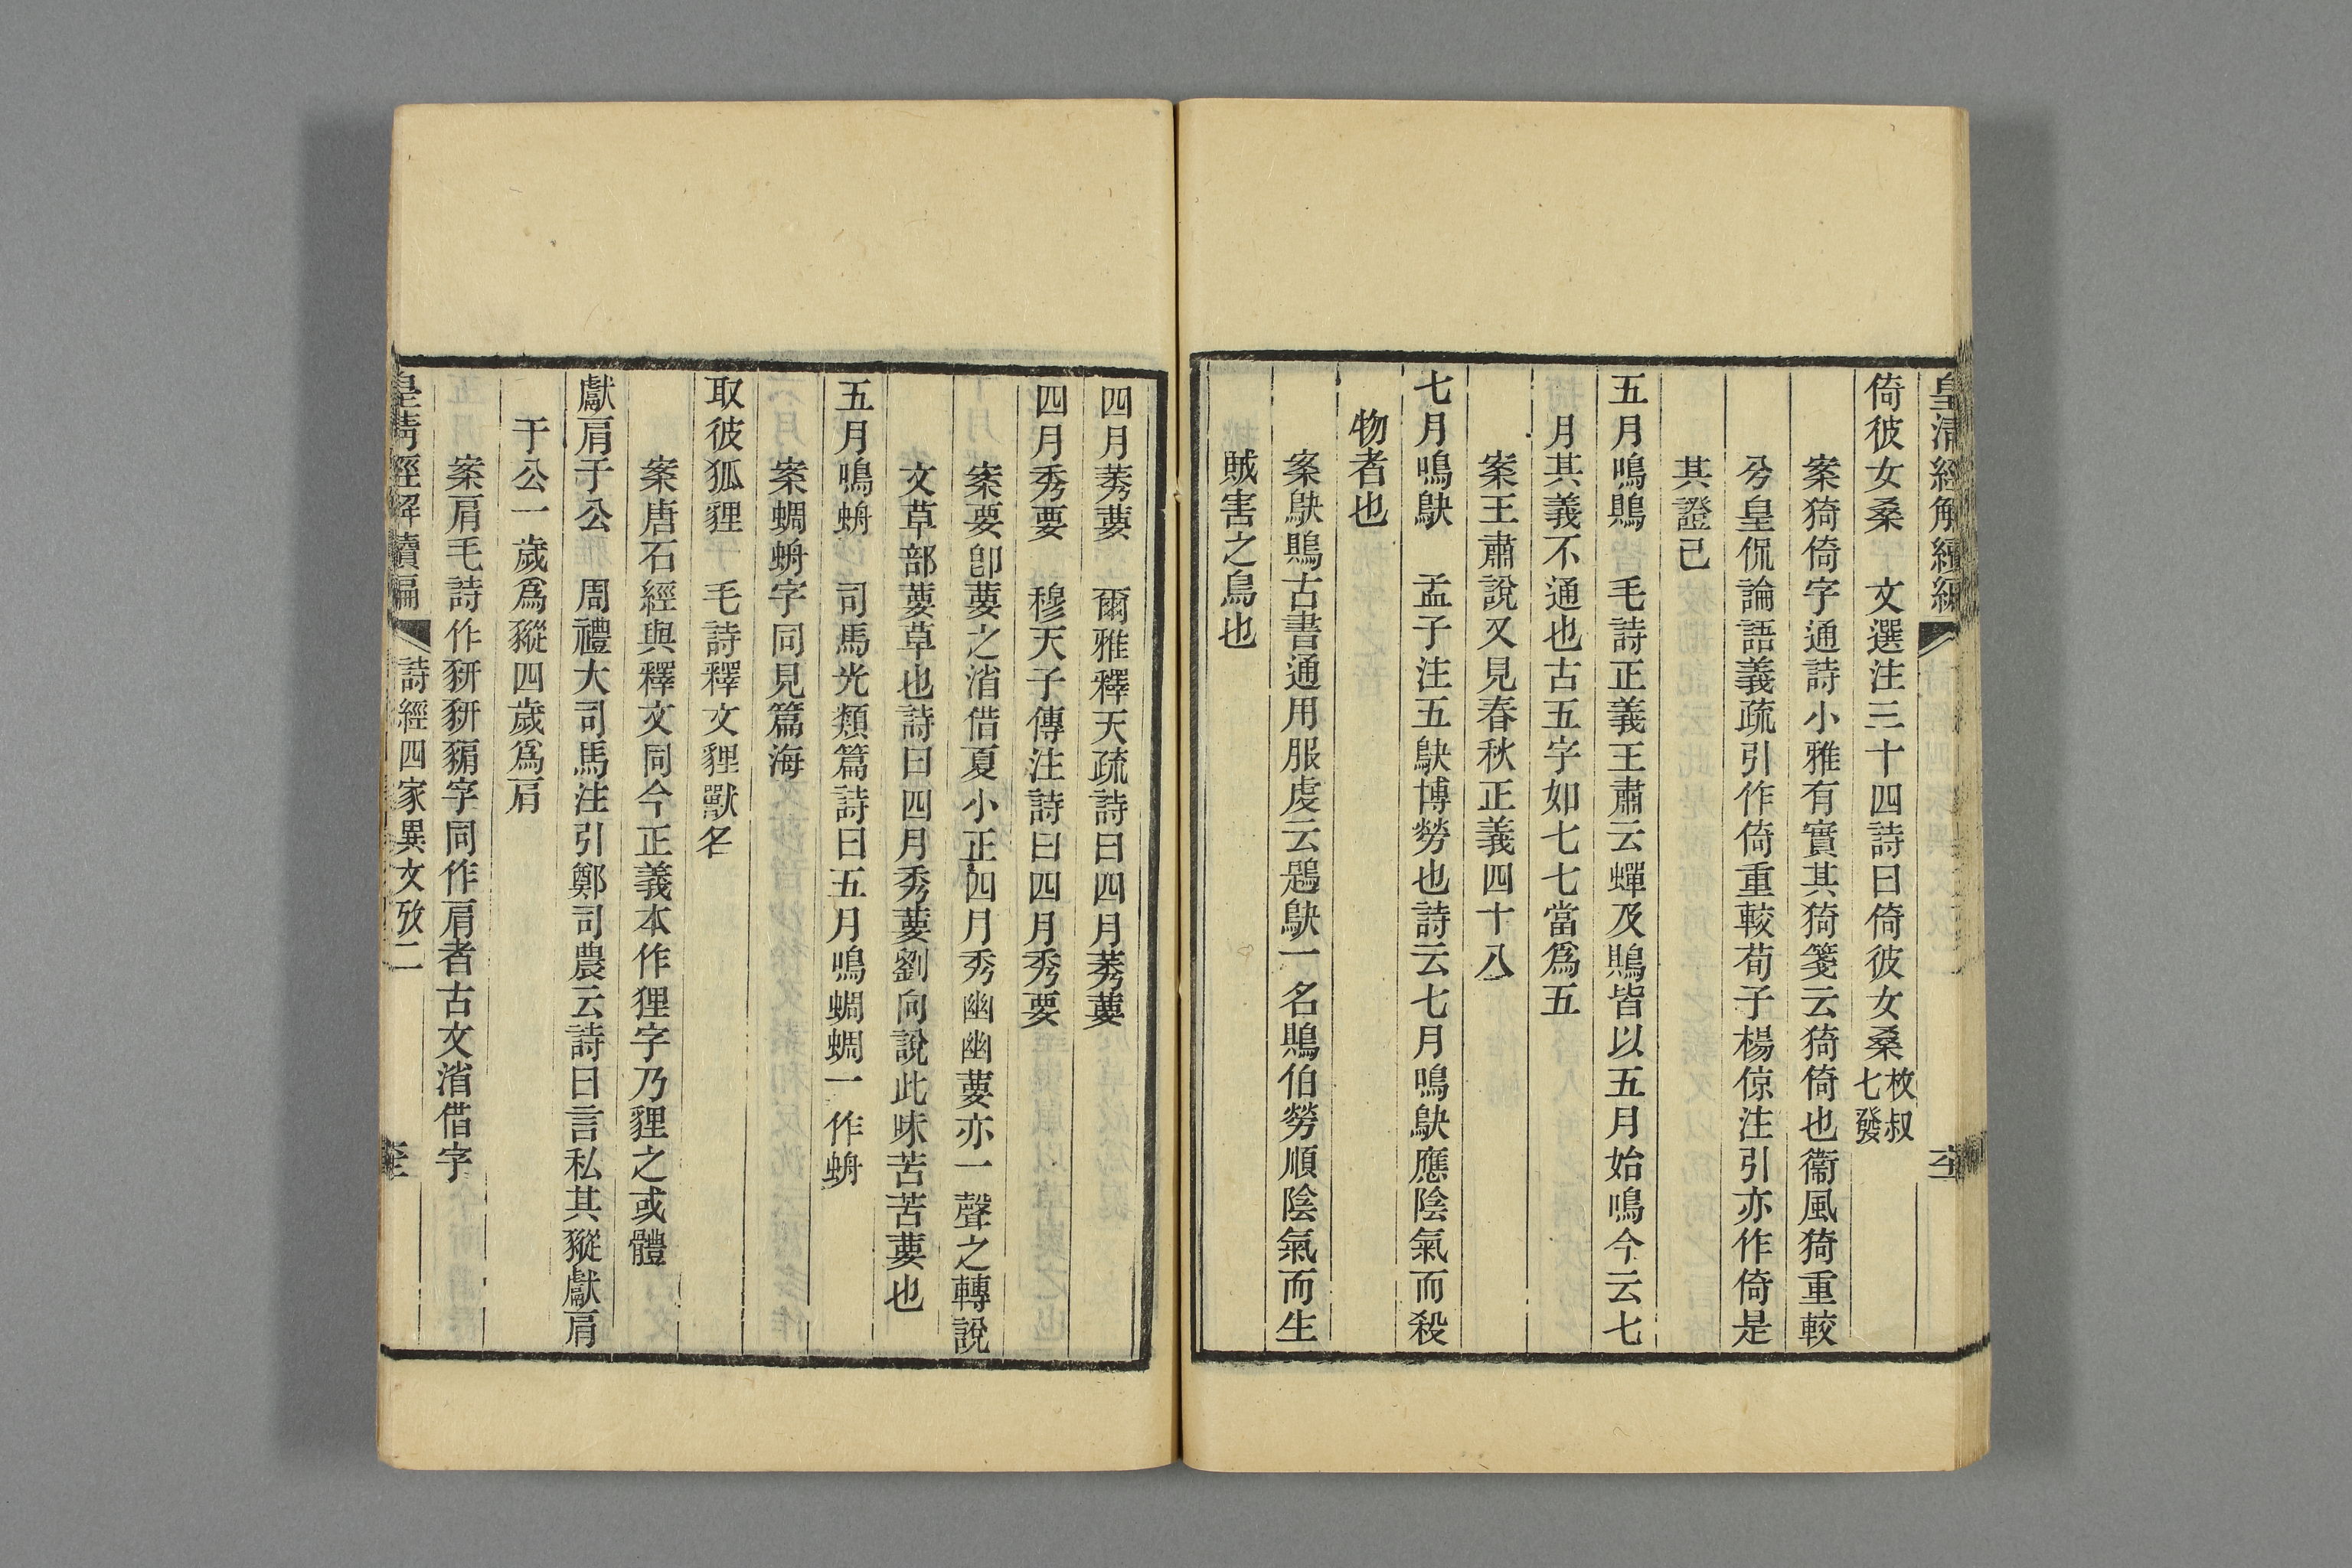 皇清經解續編
倚彼女桑　文選注三十四詩曰倚彼女桑枚叔七發
案猗倚字通詩小雅有實其猗箋云猗倚也衞風猗重較
兮皇侃論語義疏引作倚重較荀子楊倞注引亦作倚是
其證已
五月鳴鵙　毛詩正義王肅云蟬及鵙皆以五月始鳴今云七
月其義不通也古五字如七七當爲五
案王肅說又見春秋正義四十八
七月鳴鴃　孟子注五鴃博勞也詩云七月鳴鴃應陰氣而殺
物者也
案鴃鵙古書通用服虔云鶗鴃一名鵙伯勞順陰氣而生
賊害之鳥也
四月莠葽　爾雅釋天疏詩曰四月莠葽
四月秀要　穆天子傳注詩曰四月秀要
案要卽葽之渻借夏小正四月秀幽幽葽亦一聲之轉說
文草部葽草也詩曰四月秀葽劉向說此味苦苦葽也
五月鳴蛧　司馬光類篇詩曰五月鳴蜩蜩一作蛧
案蜩蛧字同見篇海
取彼狐貍　毛詩釋文貍獸名
案唐石經與釋文同今正義本作狸字乃貍之或體
獻肩于公　周禮大司馬注引鄭司農云詩曰言私其豵獻肩
于公一歲爲豵四歲爲肩
案肩毛詩作豜豜豣字同作肩者古文渻借字
皇清經解續編　詩經四家異文攷二